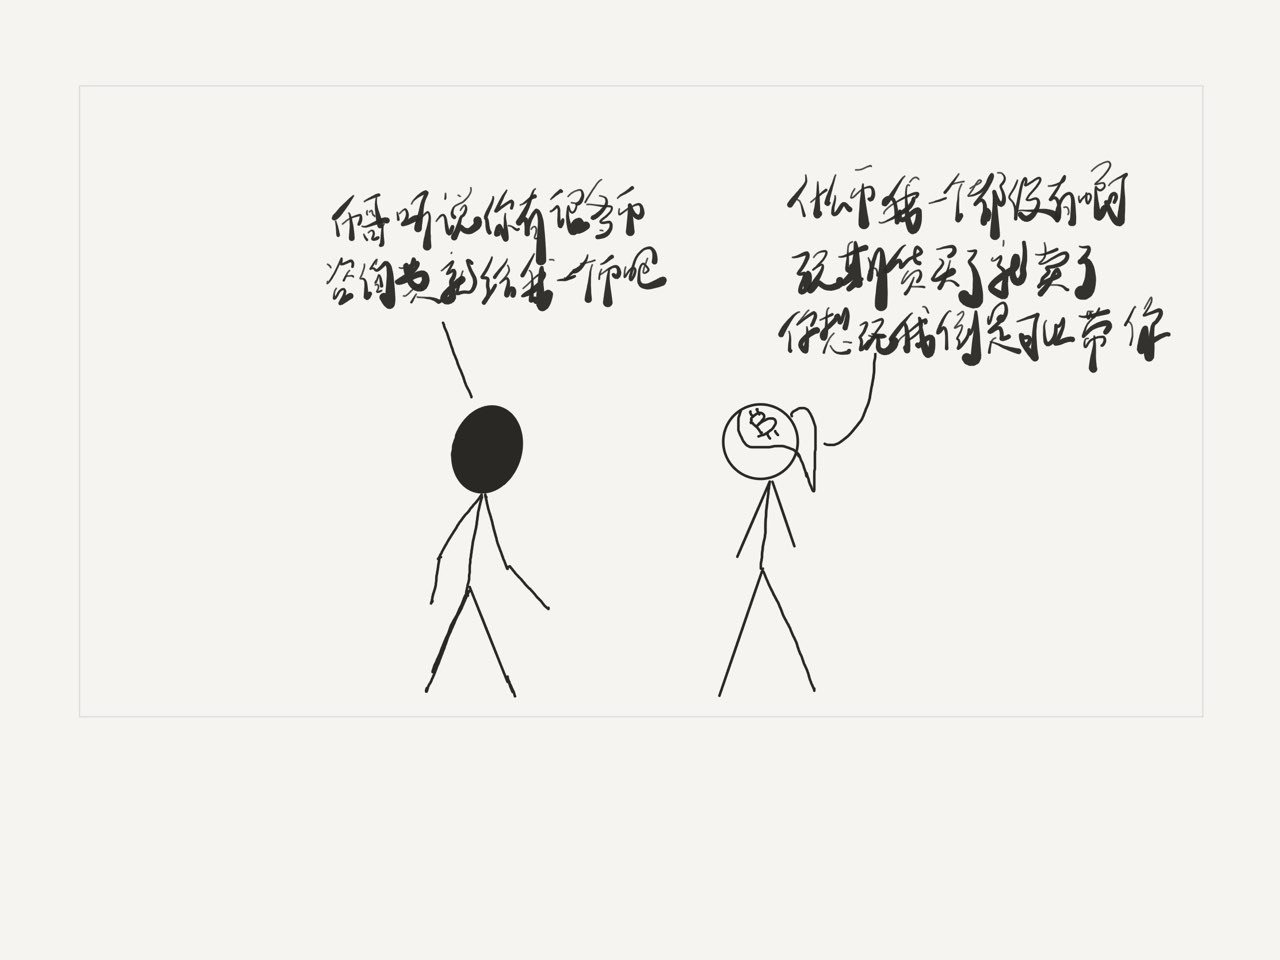 币哥听说你有很多币
咨询费就给我一个币吧
什么币我一个都没有啊
玩期货买了就卖了
你想玩我倒是可以带你
₿